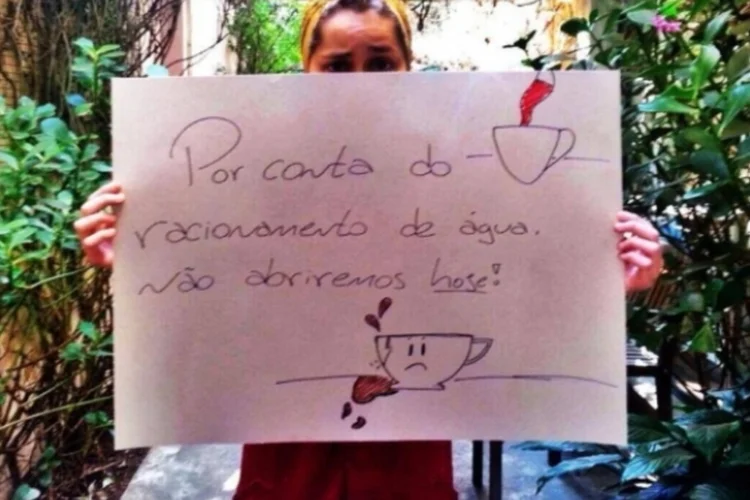 Por conta do
racionamento de água.
Não abriremos hoje!